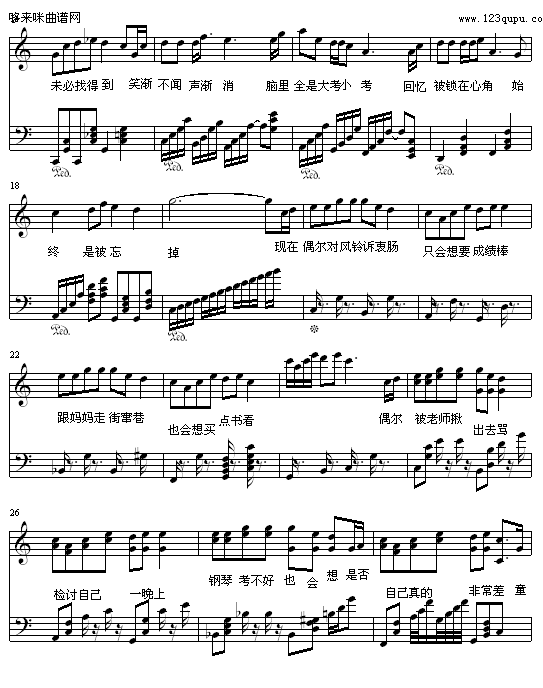 哆来咪曲谱网
www.123qupu.co
未必找得到 笑渐 不闻 声渐 消 脑里 全是大考小 考 回忆 被锁在心角 始
Ped. Ped. Ped. Ped.
18
终 是被忘 掉 现在 偶尔对风铃诉衷肠 只会想要成绩棒
Ped. Ped.
22
跟妈妈走 街窜巷 也会想买 点书看 偶尔 被老师揪 出去骂
26
检讨自己 一晚上 钢琴 考不好 也 会 想 是否 自己真的 非常差 童